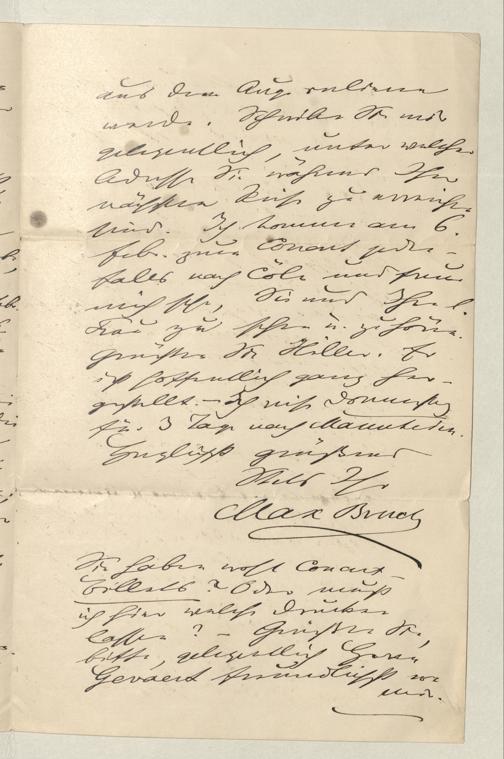 aus dem Auge verlieren
werde. Schreiben Sie mir
gelegentlich, unter welcher
Adresse Sie während Ihrer
nächsten Reise zu erreichen
sind. Ich komme am 6.
Feb. zum Concert jeden-
falls nach Cöln und freue
mich sehr, Sie und Ihre l.
Frau zu sehen u. zu hören.
Grüßen Sie Hiller. Er
ist hoffentlich ganz her-
gestellt. – Ich reise Donnerstag
für 3 Tage nach Mannheim.
Herzlichst grüßend
Stets Ihr
Max Bruch
Sie haben wohl Concert-
billets? Oder muß
ich hier welche drucken
lassen? – Grüßen Sie,
bitte, gelegentlich Herrn
Gevaert freundlichst von
mir.